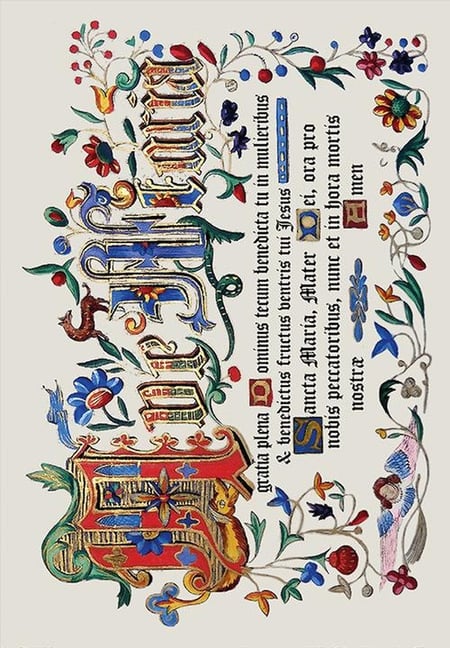 Ave Maria
gratia plena Dominus tecum benedicta tu in mulieribus
& benedictus fructus ventris tui Jesus
Sancta Maria, Mater Dei, ora pro
nobis peccatoribus, nunc et in hora mortis
nostræ Amen